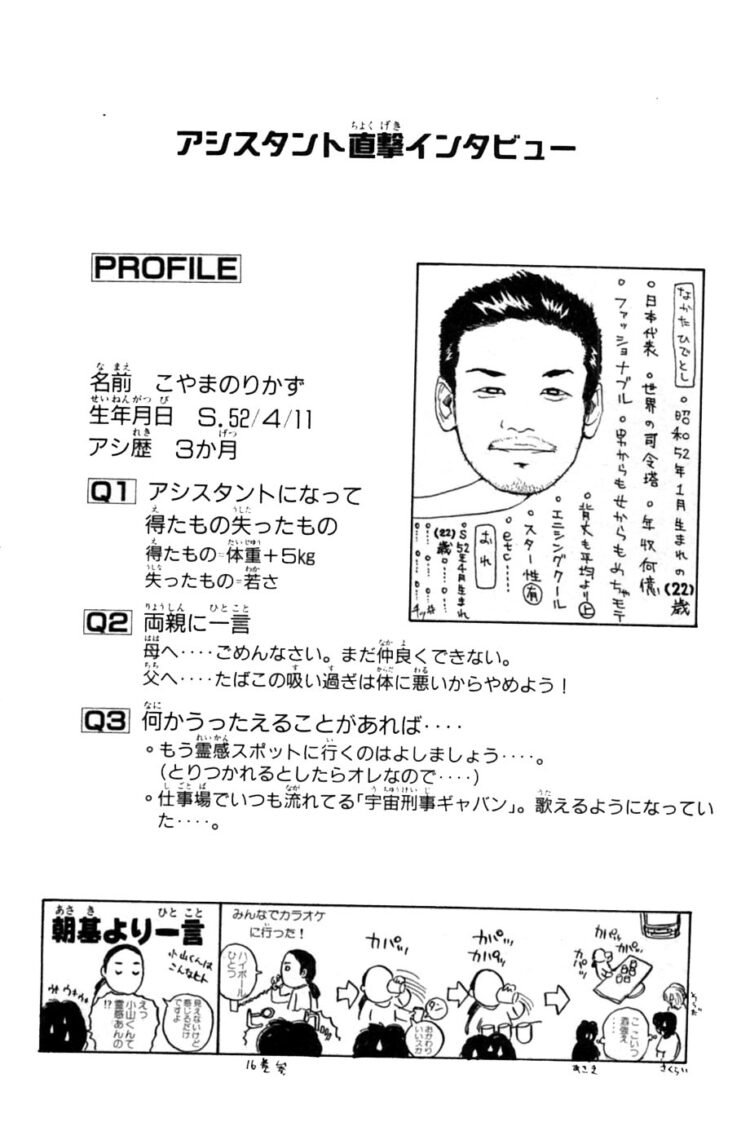 アシスタント直撃インタビュー
PROFILE
名前 こやまのりかず
生年月日 S.52/4/11
アシ歴 3か月
なかたひでとし
◦昭和52年1月生まれの(22)歳
◦日本代表 ◦世界の司令塔 ◦年収何億
◦ファッショナブル ◦男からも女からもめちゃモテ
◦背丈も平均より上
◦エニシングクール
◦スター性有
◦etc……
おれ
◦S52年4月生まれ
(22)歳
Q1 アシスタントになって
得たもの失ったもの
得たもの=体重+5kg
失ったもの=若さ
Q2 両親に一言
母へ‥‥ごめんなさい。まだ仲良くできない。
父へ‥‥たばこの吸い過ぎは体に悪いからやめよう！
Q3 何かうったえることがあれば‥‥
◦もう霊感スポットに行くのはよしましょう‥‥。
(とりつかれるとしたらオレなので‥‥)
◦仕事場でいつも流れてる「宇宙刑事ギャバン」。歌えるようになってい
た‥‥。
朝基より一言
小山くんは
こんなヒト
見えないけど
感じるだけ
ですよ
えっ
小山くんて
霊感あんの
!?
みんなでカラオケ
に行った！
ハイボール
ひとつ
カパッ
おかわり
いいスか
カパッ
カパッ
カパッ
カパッ
こいつ
酒強え
あさき
さくらい